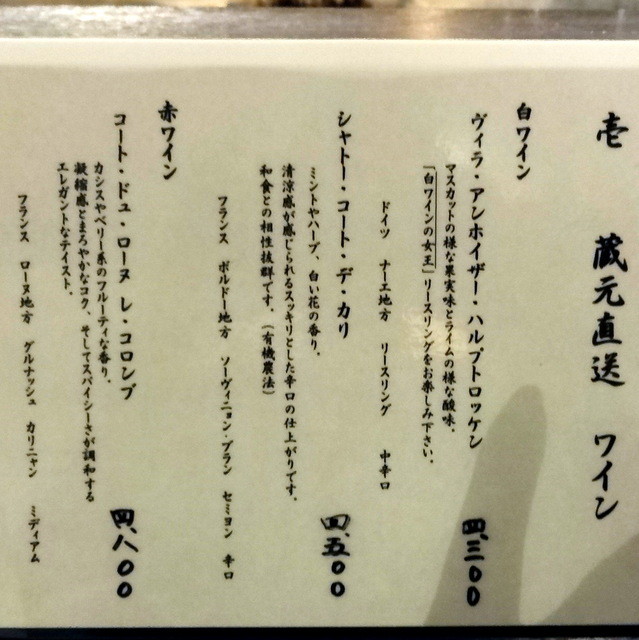 壱 蔵元直送 ワイン
白ワイン
ヴィラ・アンホイザー・ハルプトロッケン 四、三〇〇
マスカットの様な果実味とライムの様な酸味。
「白ワインの女王」リースリングをお楽しみ下さい。
ドイツ ナーエ地方 リースリング 中辛口
シャトー・コート・デ・カリ 四、五〇〇
ミントやハーブ、白い花の香り。
清涼感が感じられるスッキリとした辛口の仕上がりです。
和食との相性抜群です。（有機農法）
フランス ボルドー地方 ソーヴィニョン・ブラン セミヨン 辛口
赤ワイン
コート・ドュ・ローヌ レ・コロンブ 四、八〇〇
カシスやベリー系のフルーティな香り。
凝縮感とまろやかなコク、そしてスパイシーさが調和する
エレガントなテイスト。
フランス ローヌ地方 グルナッシュ カリニャン ミディアム